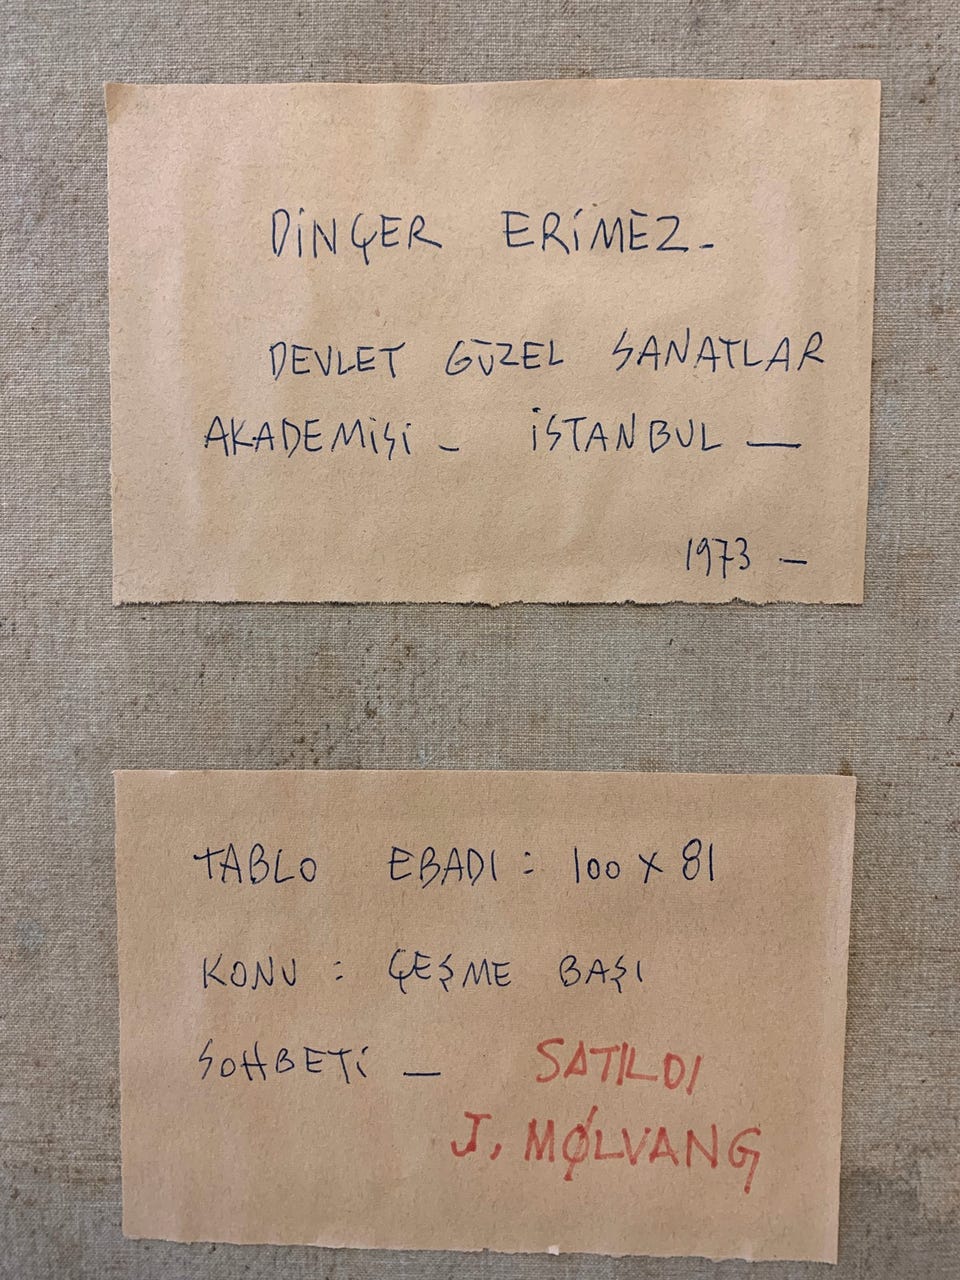 DİNÇER ERİMEZ-
DEVLET GÜZEL SANATLAR
AKADEMİSİ - İSTANBUL —
1973 —
TABLO EBADI : 100 X 81
KONU : ÇEŞME BAŞI
SOHBETİ —
SATILDI
J, MØLVANG